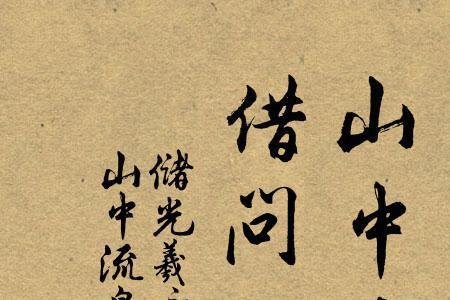 山中
借问
储光羲
山中流